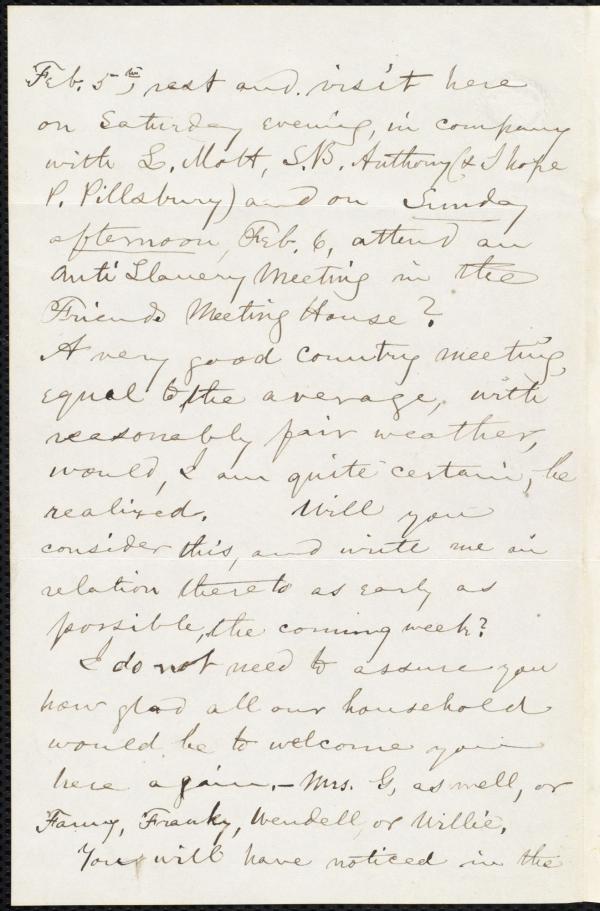 Feb. 5th, rest and visit here
on Saturday evening, in company
with L. Mott, S.B. Anthony (& I hope
P. Pillsbury) and on Sunday
afternoon, Feb. 6, attend an
Anti Slavery Meeting in the
Friends Meeting House?
A very good country meeting,
equal to the average, with
reasonably fair weather,
would, I am quite certain, be
realized. Will you
consider this, and write me in
relation thereto as early as
possible, the coming week?
I do not need to assure you
how glad all our household
would be to welcome you
here again, - Mrs. G, as well, or
Fanny, Franky, Wendell or Willie.
You will have noticed in the